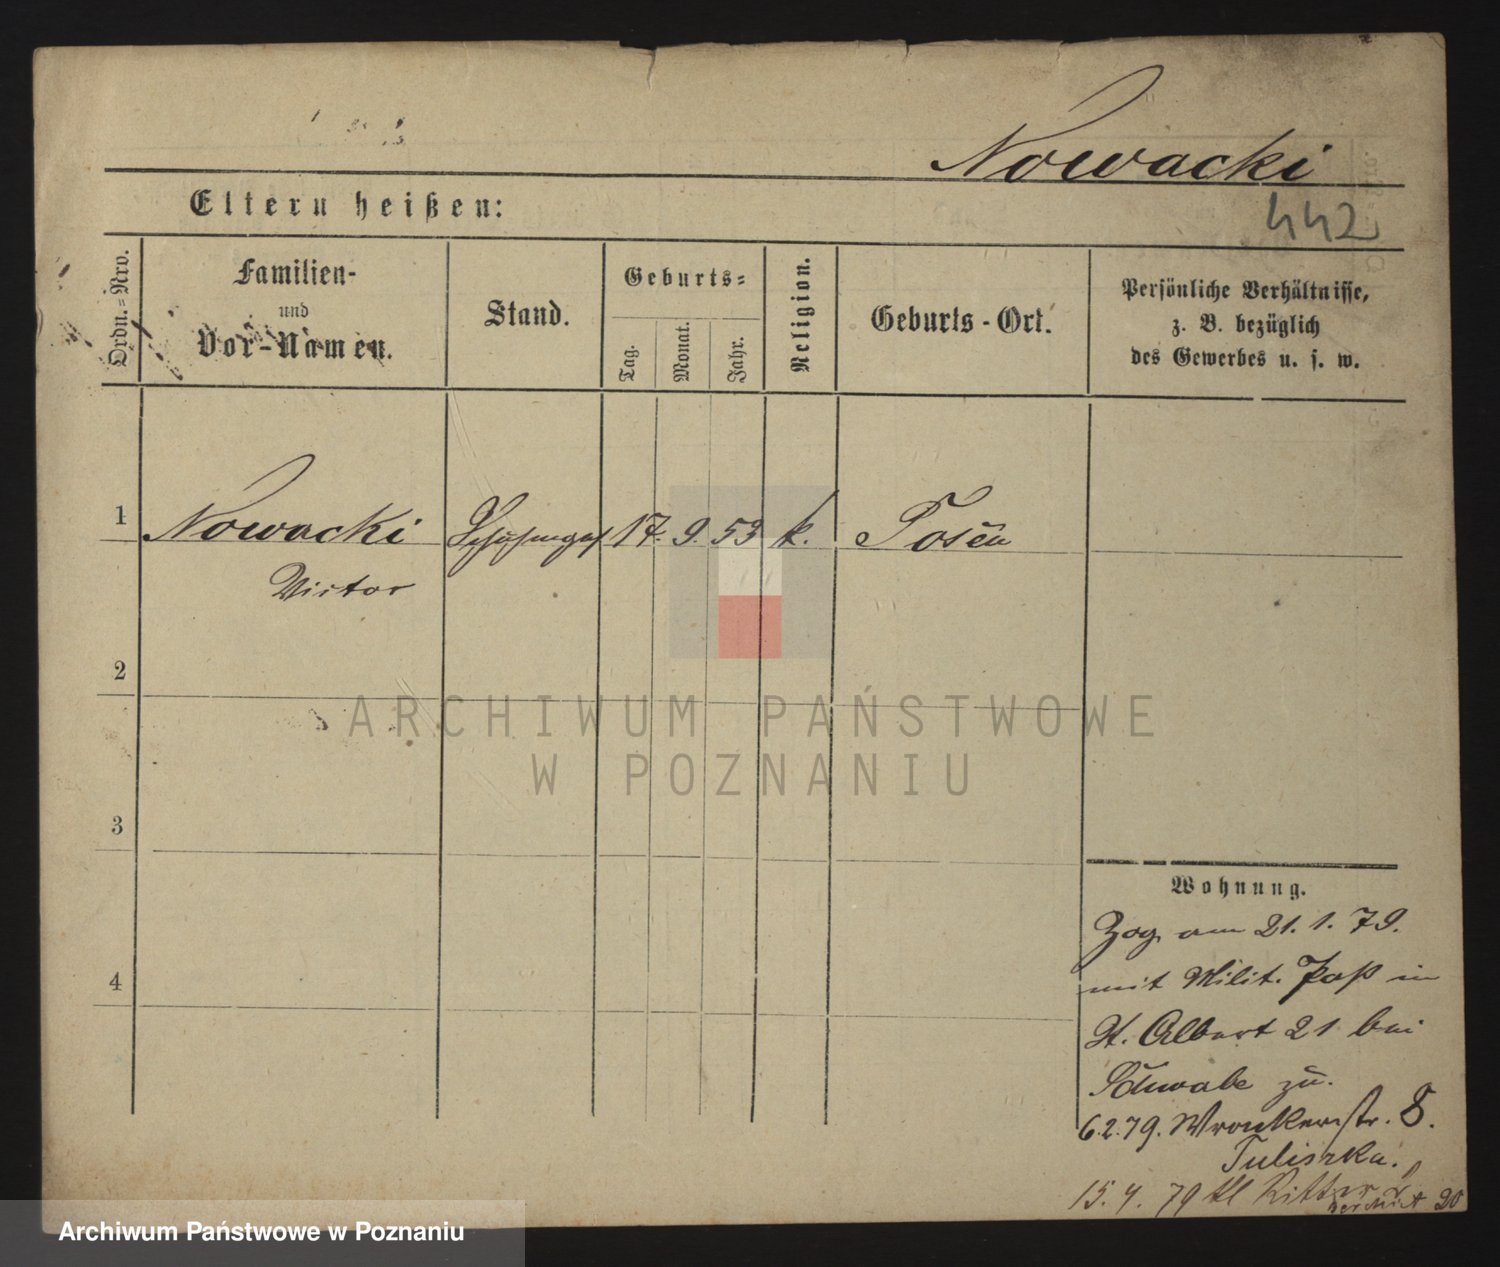 Nowacki
Eltern heißen:
442
Ordn.=Nro.
Familien-
und
Vor-Namen.
Stand.
Geburts=
Tag.
Monat.
Jahr.
Religion.
Geburts-Ort.
Persönliche Verhältnisse,
z. B. bezüglich
des Gewerbes u. s. w.
1
Nowacki
17. 9. 53
k.
Posen
Victor
2
ARCHIWUM PAŃSTWOWE
W POZNANIU
3
Wohnung.
Zog am 21. 1. 79.
4
mit Milit. Paß in
St. Albert 21 bei
Schwabe zu.
6.2.79. Wronkerstr. 8.
Tuliszka.
15. 4. 79 kl Ritter
20
Archiwum Państwowe w Poznaniu